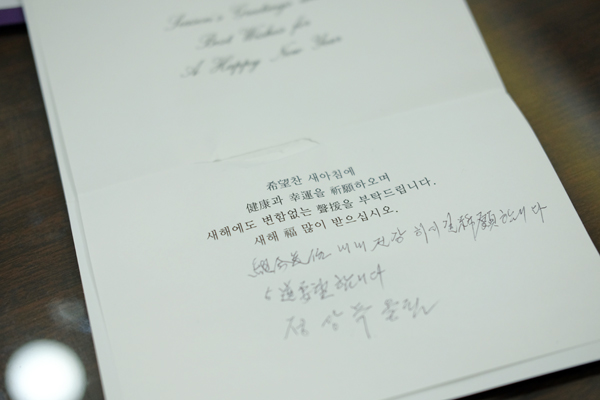 Season's Greetings and
Best Wishes for
A Happy New Year
希望찬 새아침에
健康과 幸運을 祈願하오며
새해에도 변함없는 聲援을 부탁드립니다.
새해 福 많이 받으십시오.
내내 건강 하시길 祈願합니다
드림